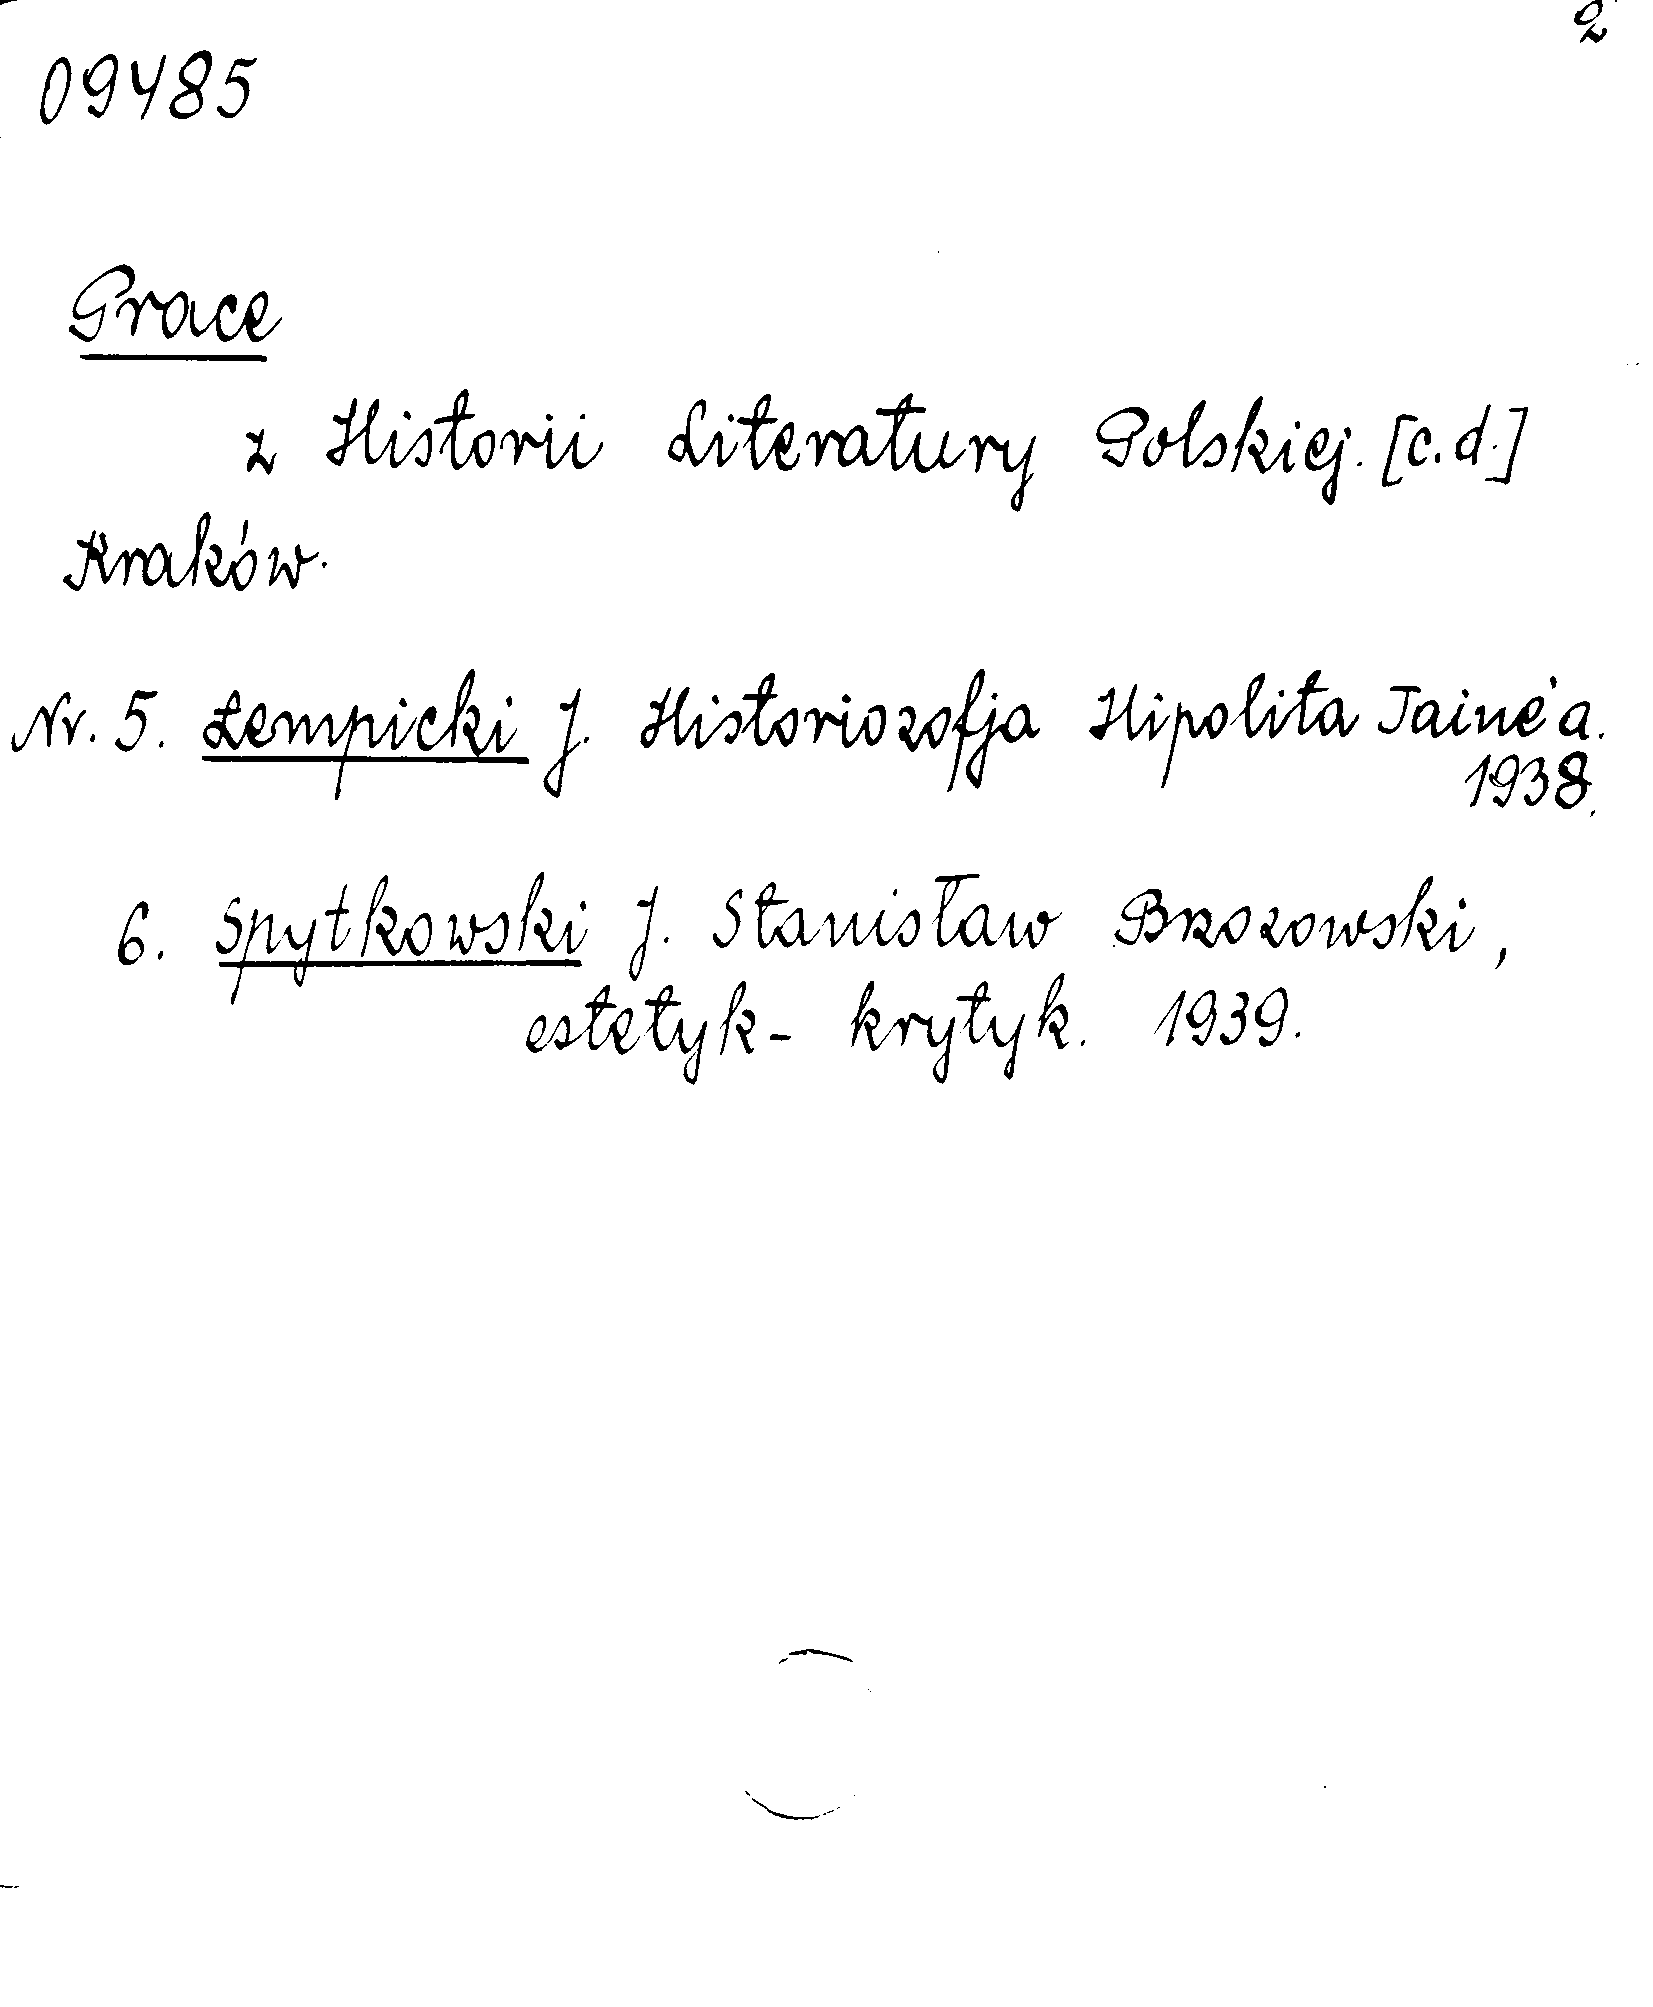 2
09485
Prace
z Historii Literatury Polskiej. [c.d.]
Kraków.
Nr. 5. Łempicki J. Historiozofja Hipolita Taine'a.
1938.
6. Spytkowski J. Stanisław Brzozowski,
estetyk - krytyk. 1939.